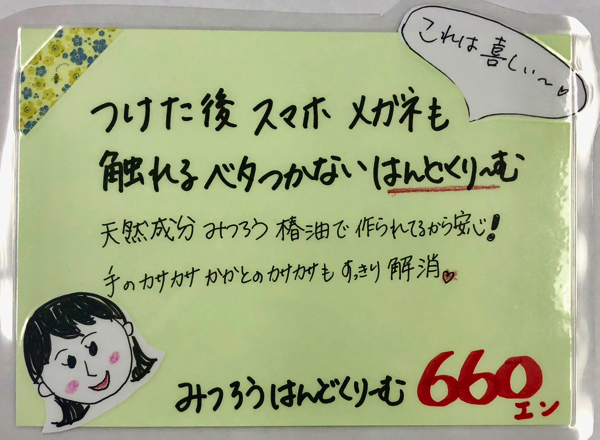 これは喜しい〜♡
つけた後 スマホ メガネも
触れる ベタつかない はんどくり〜む
天然成分 みつろう 椿油で 作られてるから安心!
手のカサカサ かかとのカサカサも すっきり 解消♥
みつろうはんどくり〜む 660
エン